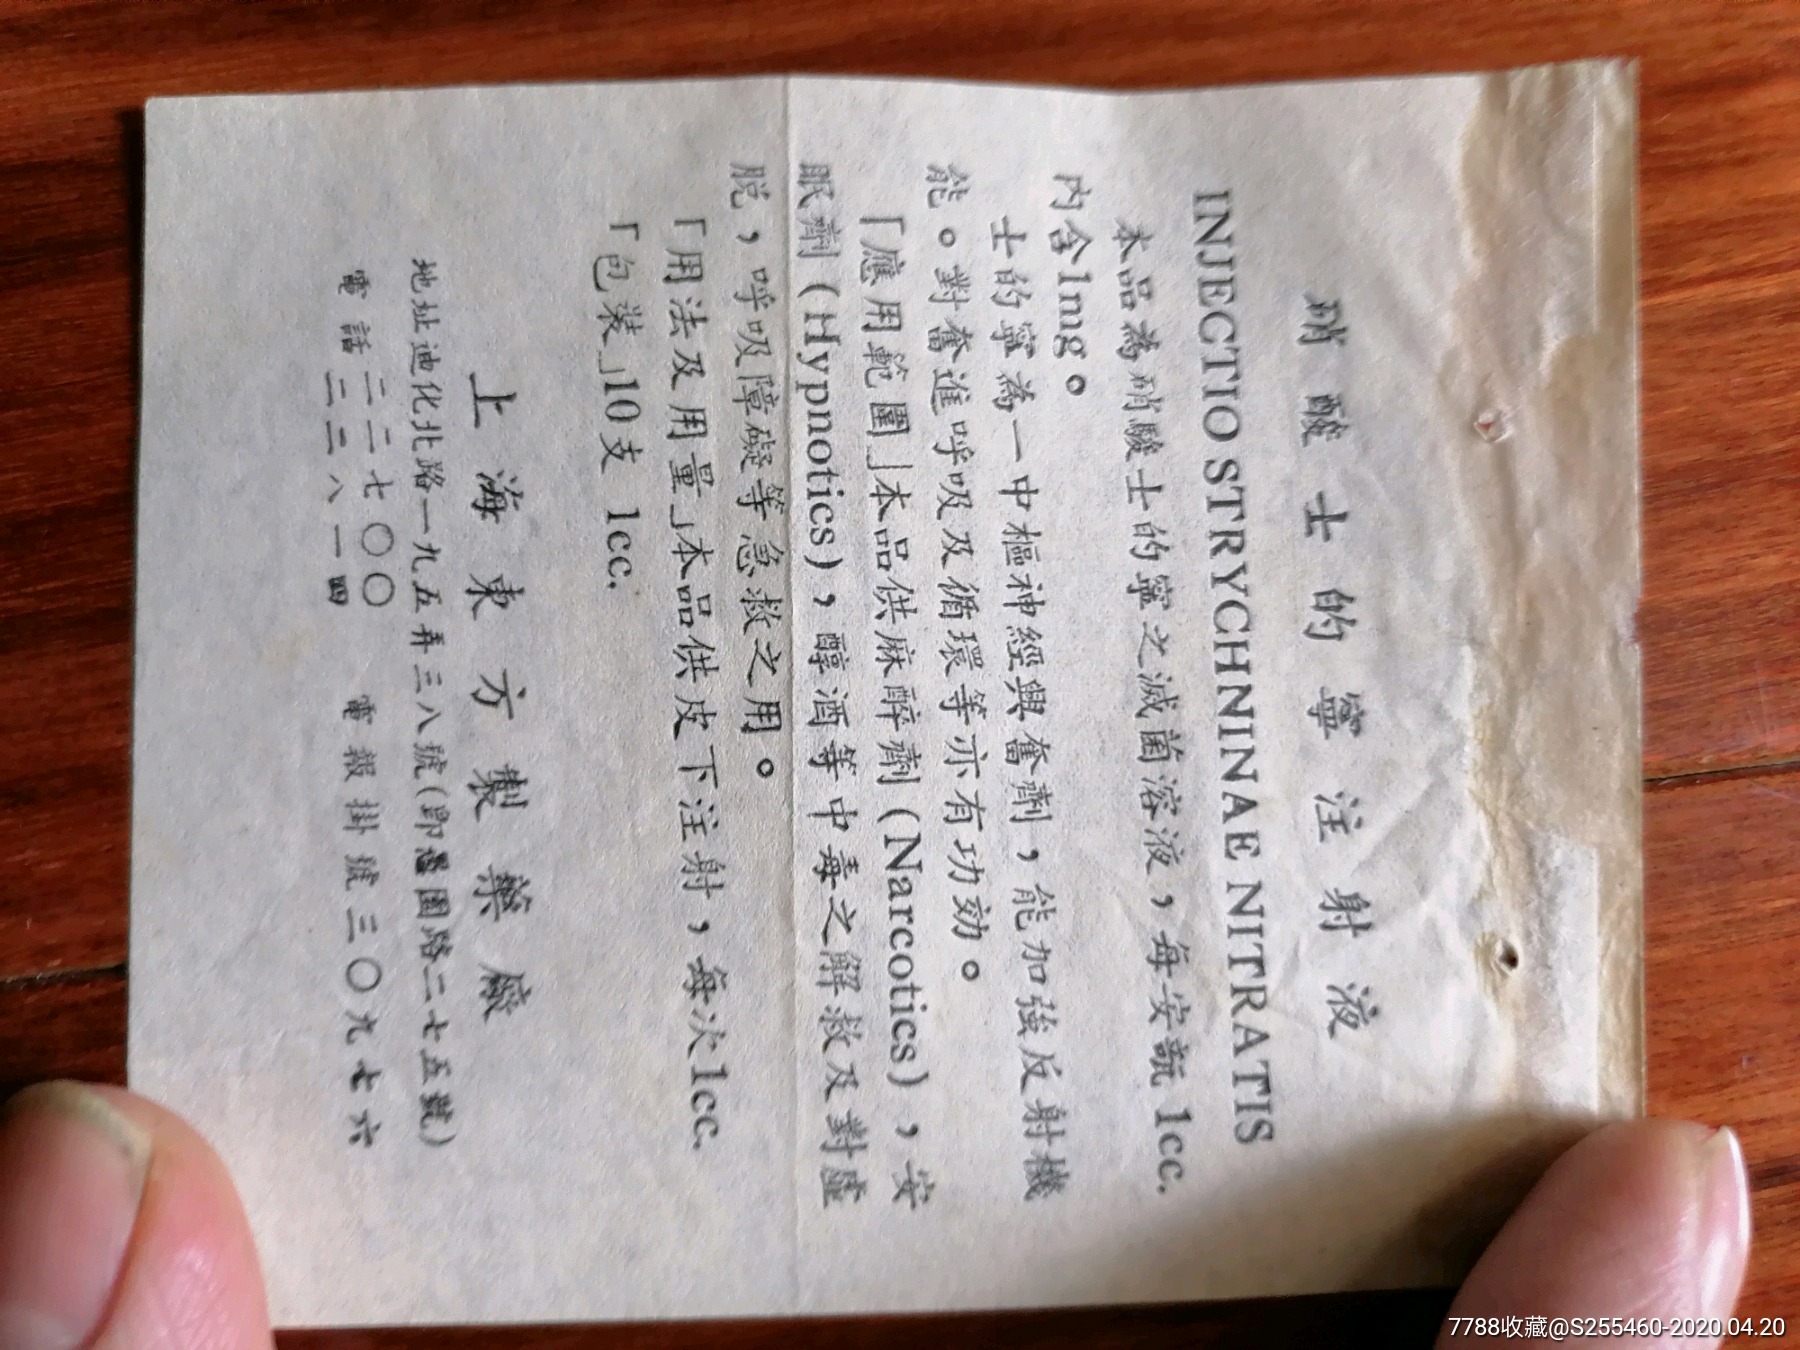 硝酸士的寧注射液
INJECTIO STRYCHNINAE NITRATIS
本品為硝酸士的寧之滅菌溶液，每安瓿 1cc.
內含1mg。
士的寧為一中樞神經興奮劑，能加強反射機
能。對奮進呼吸及循環等亦有功効。
「應用範圍」本品供麻醉劑(Narcotics)，安
眠劑(Hypnotics)，醇酒等中毒之解救及對虛
脫，呼吸障礙等急救之用。
「用法及用量」本品供皮下注射，每次1cc.
「包裝」10支 1cc.
上海東方製藥廠
地址迪化北路一九五弄三八號(即愚園路二七五號)
電話 二二七〇〇 電報掛號三〇九七六
二二八一四
7788收藏@S255460-2020.04.20